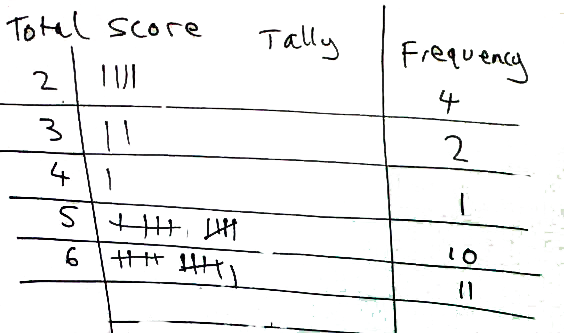 Total Score Tally Frequency
2 |||| 4
3 || 2
4 | 1
5 卌 卌 10
6 卌 卌 | 11